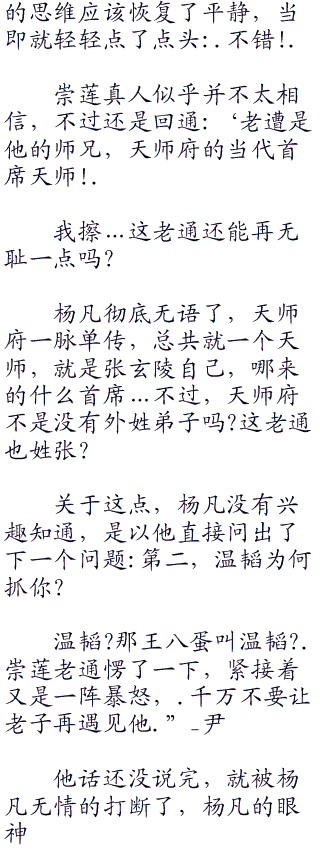 的思维应该恢复了平静，当
即就轻轻点了点头:.不错!.
崇莲真人似乎并不太相
信，不过还是回通:‘老遭是
他的师兄，天师府的当代首
席天师!.
我擦…这老通还能再无
耻一点吗?
杨凡彻底无语了，天师
府一脉单传，总共就一个天
师，就是张玄陵自己，哪来
的什么首席…不过，天师府
不是没有外姓弟子吗?这老通
也姓张?
关于这点，杨凡没有兴
趣知通，是以他直接问出了
下一个问题:第二，温韬为何
抓你?
温韬?那王八蛋叫温韬?.
崇莲老通愣了一下，紧接着
又是一阵暴怒，.千万不要让
老子再遇见他.”_尹
他话还没说完，就被杨
凡无情的打断了，杨凡的眼
神